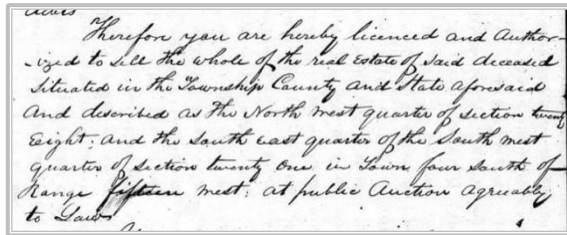 Therefore you are hereby licenced and Author-
-ized to sell the whole of the real Estate of said deceased
Situated in the Township County and State aforesaid
And described as The North west quarter of section twenty
Eight; and the South east quarter of the South west
quarter of section twenty One in Town four South of
Range fifteen west; at public Auction agreeably
to Law